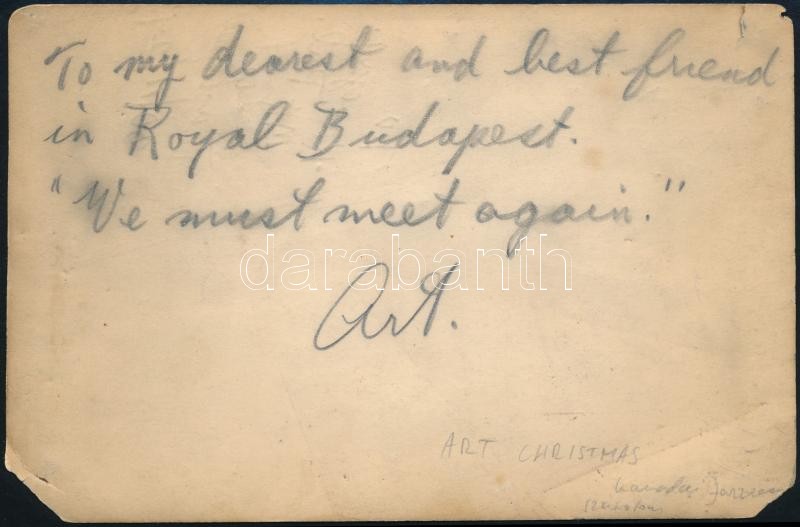 To my dearest and best friend
in Royal Budapest.
"We must meet again."
darabanth
Art.
ART CHRISTMAS